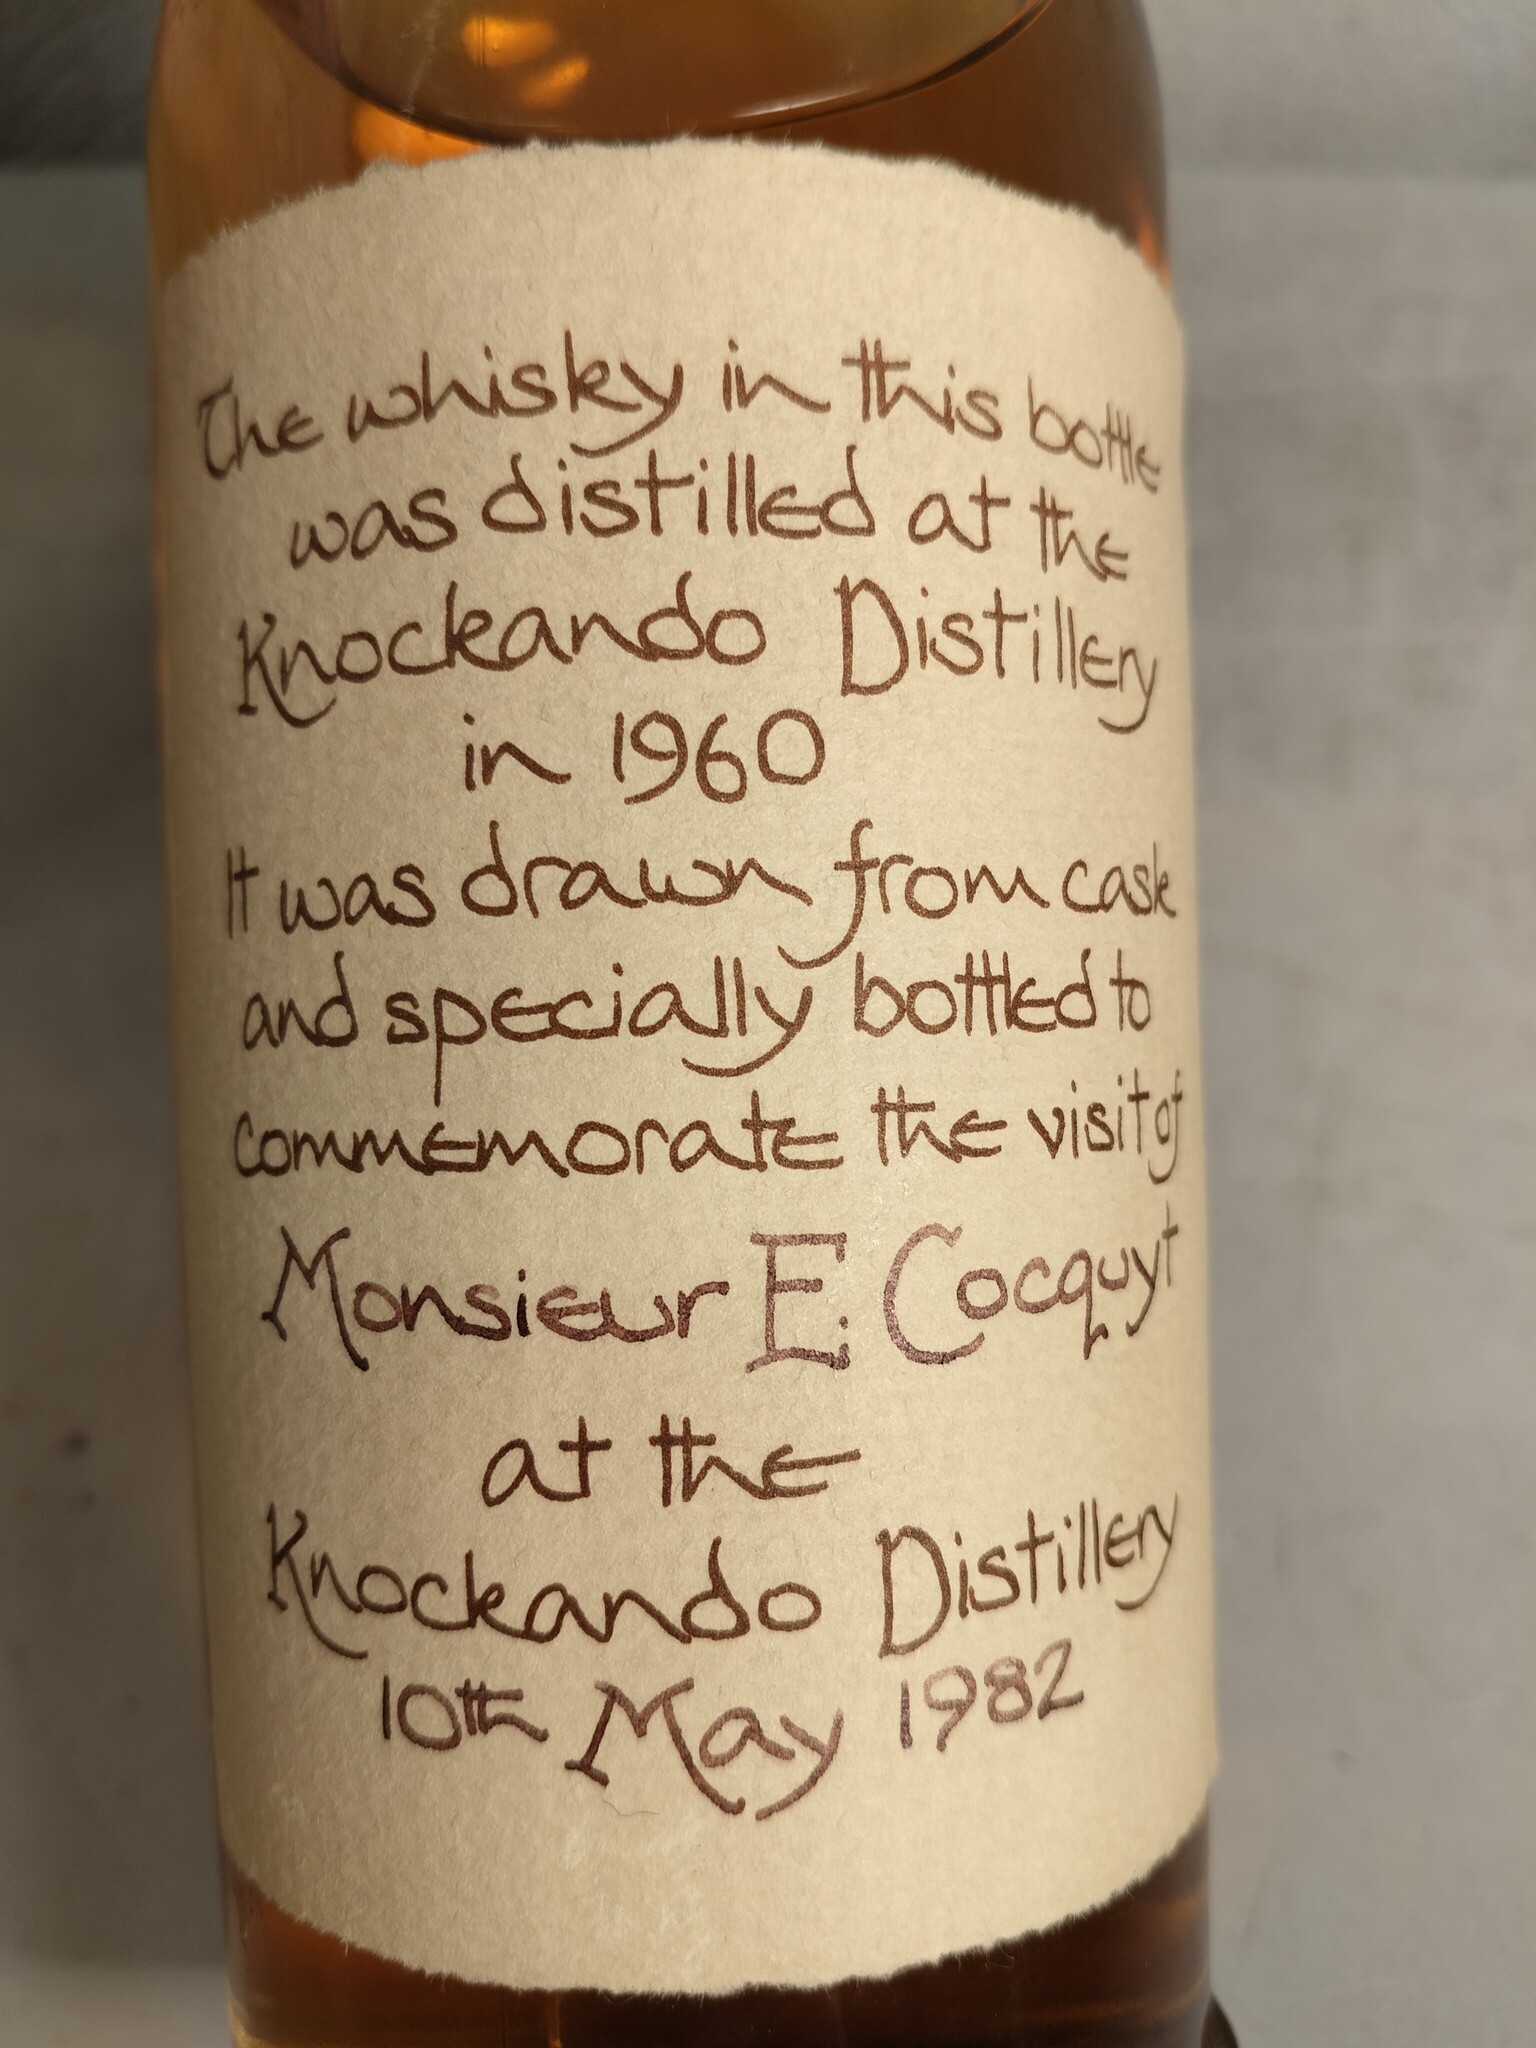 The whisky in this bottle
was distilled at the
Knockando Distillery
in 1960
It was drawn from cask
and specially bottled to
commemorate the visit of
Monsieur E. Cocquyt
at the
Knockando Distillery
10th May 1982